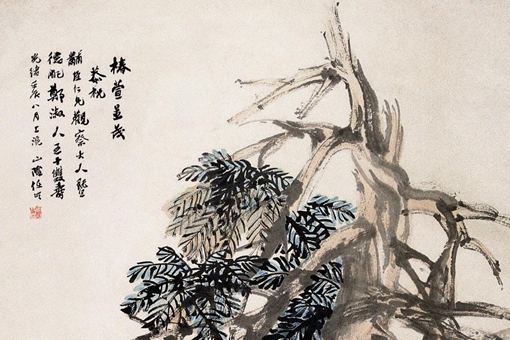 椿萱並茂
恭祝
仁兄觀察大人暨
德配鄭淑人五十雙壽
光緒壬辰八月上浣 山陰任頤